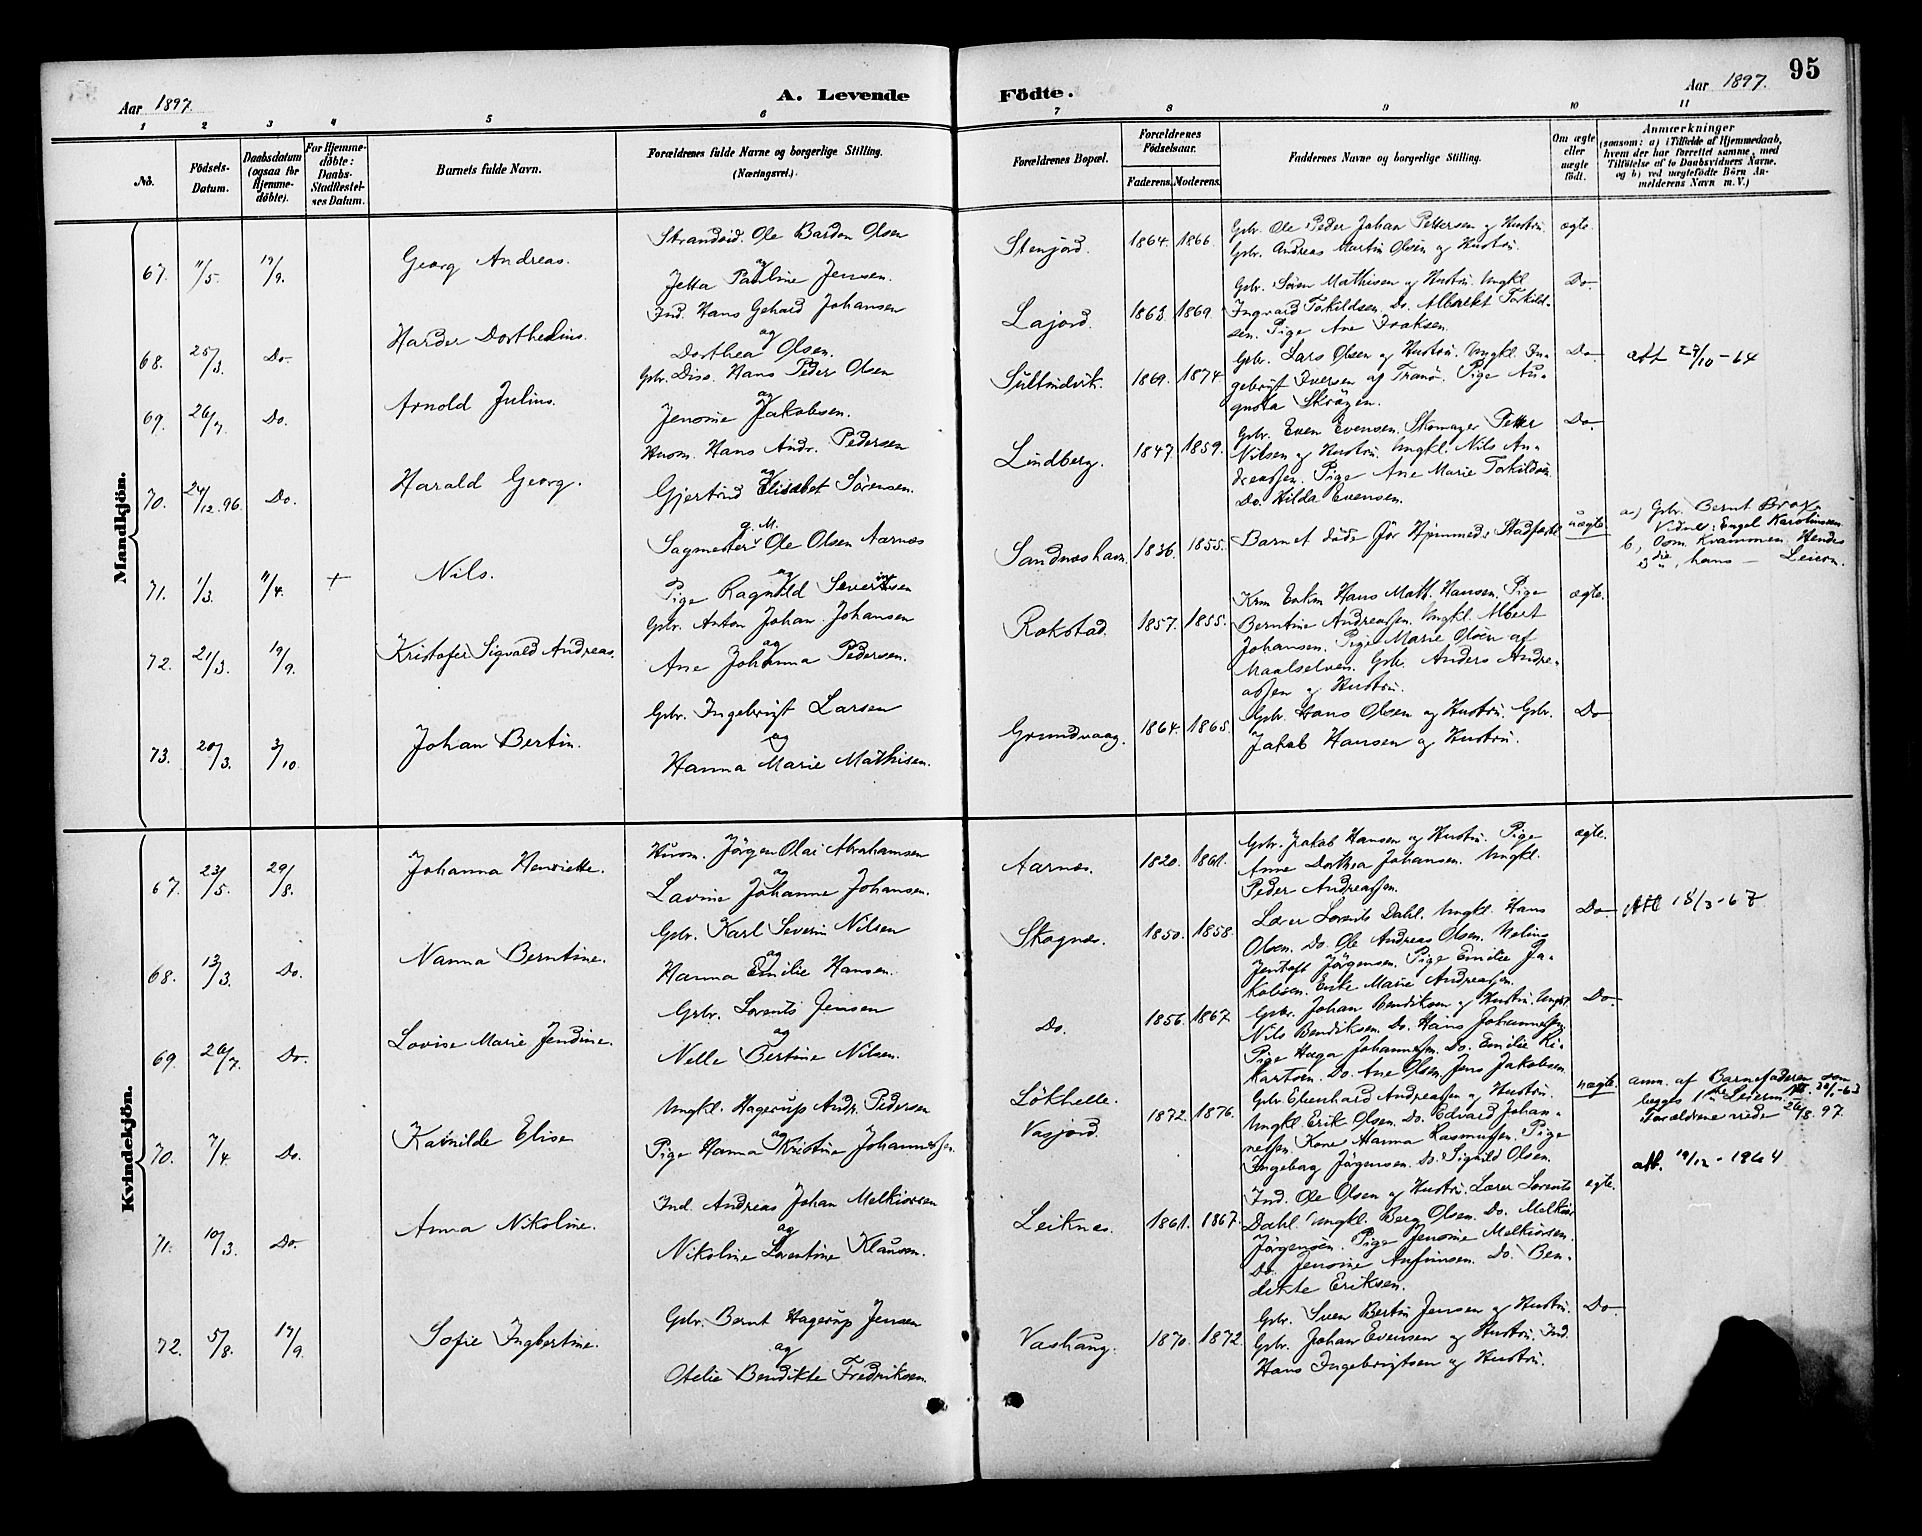 95
Aar 1897.
A. Levende Fødte.
Aar 1897.
1 2 3 4 5 6 7 8 9 10 11
No.
Fødsels-Datum.
Daabsdatum (ogsaa for Hjemme-døbte).
For Hjemme-døbte: Daabs-Stadfæstel-ses Datum.
Barnets fulde Navn.
Forældrenes fulde Navne og borgerlige Stilling. (Næringsvei.)
Forældrenes Bopæl.
Forældrenes Fødselsaar.
Faderens. Moderens.
Faddernes Navne og borgerlige Stilling.
Om ægte eller uægte født.
Anmærkninger
(saasom: a) i Tilfælde af Hjemmedaab, hvem der har forrettet samme, med Tilføielse af to Daabsvidners Navne. og b) ved uægtefødte Børn An-melderens Navn m. V.)
Mandkjøn.
67. 11/5 19/9. Georg Andreas.
Strandsid. Ole Bardon Olsen
og
Jetta Pauline Jensen.
Stenjord. 1864. 1866.
Gbr. Ole Peder Johan Pettersen og Hustru.
Gbr. Andreas Martin Olsen og Hustru.
ægte.
68. 25/3. Do. Harder Dorthedius.
Ind. Hans Gehard Johansen
og
Dorthea Olsen.
Lajord. 1863. 1869.
Gbr. Sören Mathisen og Hustru. Ungkl
Ingvard Tokildsen. Do. Albrekt Tokild-
sen. Pige Ane Isaksen.
Do.
att 29/10-64
69. 26/7. Do. Arnold Julius.
Gbr. Diss. Hans Peder Olsen
og
Jensine Jakobsen.
Sultindvik. 1869. 1874.
Gbr. Lars Olsen og Hustru. Ungkl. In-
gebrigt Iversen af Tranö. Pige Au-
gusta
Do.
70. 24/12.96. Do. Harald Georg.
Husm. Hans Andr. Pedersen
og
Gjertrud Elisabet Sørensen.
Lindberg. 1847. 1859.
Gbr. Even Evensen. Skomager Petter
Nilsen og Hustru. Ungkl. Nils An-
dreassen. Pige Ane Marie Tokildsen
Do. Hilda Evensen.
Do.
71. 1/3. 11/4. + Nils.
g. M.
Sagmester Ole Olsen Aarnes
og
Pige Ragnild Severinsen
Sandneshavn. 1836. 1855.
Barnet døde før Hjemmed. Stadfæst.
uægte.
a) Gbr. Bernt Brox.
Vidner: Engel Karolinssen
b, Osm. Kvammen. Hendes
3die, hans — Leierm.
72. 21/3. 19/9. Kristofer Sigvald Andreas.
Gbr. Anton Johan Johansen
og
Ane Johanna Pedersen.
Rokstad. 1857. 1855.
Krm Enkm Hans Math. Hansen. Pige
Berntine Andreassen. Ungkl. Albert
Johansen. Pige Marie Olsen af
Maalselven. Gbr. Anders Andre-
assen og Hustru.
ægte.
73. 20/3. 3/10. Johan Bertin.
Gbr. Ingebrigt Larsen
og
Hanna Marie Mathisen.
Grundvaag. 1864. 1865.
Gbr. Hans Olsen og Hustru. Gbr.
Jakob Hansen og Hustru.
Do
Kvindekjøn.
67. 23/5. 29/8. Johanna Henriette.
Husm. Jørgen Olai Abrahamsen
og
Lavine Johanne Johansen.
Aarnes. 1820. 1861.
Gbr. Jakob Hansen og Hustru. Pige
Anne Dorthea Johansen. Ungkl.
Peder Andreassen.
ægte.
68. 13/3. Do. Nanna Berntine.
Gbr. Karl Severin Nilsen
og
Hanna Emilie Hansen.
Skognes. 1850. 1858.
Lærer Lorents Dahl. Ungkl. Hans
Olsen. Do. Ole Andreas Olsen.
Jentoft Jørgensen. Pige Emilie Ja-
kobsen. Enke Marie Andreassen.
Do
Att 15/3-67
69. 26/7. Do. Lovise Marie Jendine.
Gbr. Lorents Jensen
og
Nelle Bertine Nilsen.
Do. 1856. 1867
Gbr. Johan Bendiksen og Hustru. Ungkl
Nils Bendiksen. Do. Hans Johannessen.
Pige Haga Johannessen. Do. Emilie Ri-
kartsen. Do. Ane Olsen. Jens Jakobsen.
Do.
70. 7/4. Do. Kasnilde Elise
Ungkl. Hagerup Andr. Pedersen
og
Pige Hanna Kristine Johannessen.
Løkhelle.
Vasjord. 1872. 1876.
Gbr. Edenhard Andreassen og Hustru.
Ungkl Erik Olsen. Do. Edvard Johan-
nessen. Kone Hanna Rasmussen. Pige
Ingebag Jørgensen. Do. Signild Olsen.
uægte.
anm. af Barnefaderen som
begges 1ste Leierm.
Forældrene viede 26/8.97.
att. 19/12-1964
71. 10/3. Do. Anna Nikoline.
Ind. Andreas Johan Melkiorsen
og
Nikoline Lorentine Klausen.
Leiknes. 1861. 1867.
Ind. Ole Olsen og Hustru. Lærer Lorents
Dahl. Ungkl. Berg Olsen. Do. Melkior
Jørgensen. Pige Jensine Melkiorsen.
Do. Jensine Anfinnsen. Do. Ben-
dikte Eriksen.
ægte.
72. 5/8. 19/9. Sofie Ingbertine.
Gbr. Bernt Hagerup Jensen
og
Otelie Bendikte Fredriksen.
Vashaug. 1870. 1872
Gbr. Sven Bertin Jensen og Hustru.
Gbr. Johan Evensen og Hustru. Ind.
Hans Ingebrigtsen og Hustru.
Do.